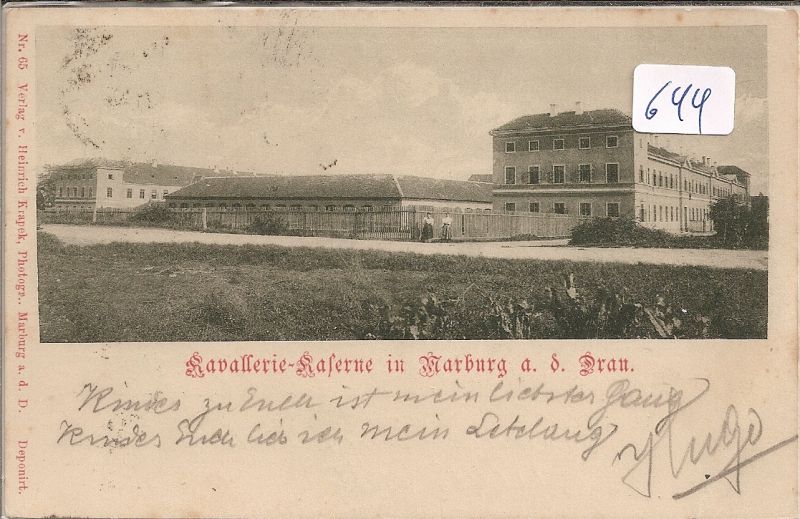 644
Nr. 65 Verlag v. Heinrich Krapek, Photogr., Marburg a. d. D. Deponirt.
Kavallerie-Kaserne in Marburg a. d. Drau.
Kindes zu Euch ist mein liebster Gang
Kindes Euch lieb ich mein Lebelang
Hugo